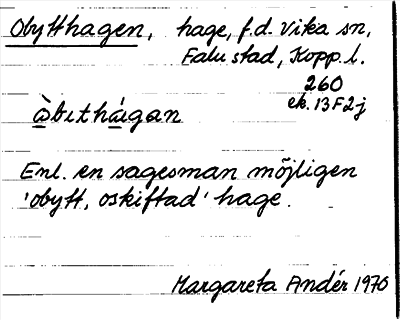 Obytthagen, hage, f.d. Vika sn,
Falu stad, Kopp. l.
260
ek. 13F2j
àbıthágan
Enl. en sagesman möjligen
'obytt, oskiftad' hage.
Margareta Andér 1970